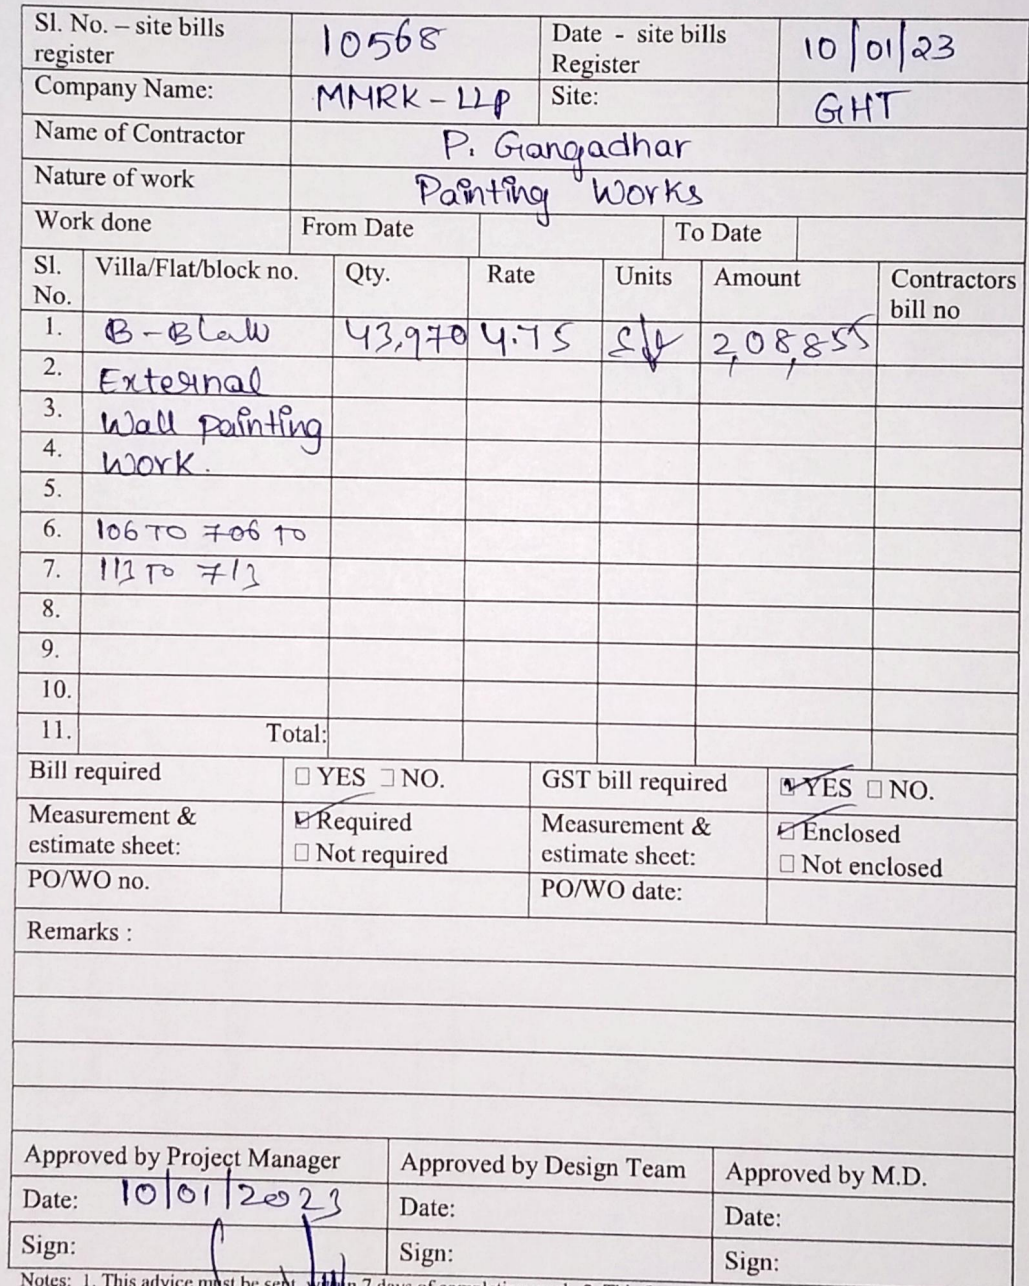 Sl. No. – site bills register 10568 Date - site bills Register 10/01/23
Company Name: MMRK - LLP Site: GHT
Name of Contractor P. Gangadhar
Nature of work Painting Works
Work done From Date To Date
Sl. No. Villa/Flat/block no. Qty. Rate Units Amount Contractors bill no
1. B-Block 43,970 4.75 sft 2,08,855
2. External
3. Wall painting
4. Work.
5.
6. 106 TO 706 to
7. 113 TO 713
8.
9.
10.
11. Total:
Bill required ☐ YES ☐ NO. GST bill required ☑ YES ☐ NO.
Measurement & estimate sheet: ☑ Required ☐ Not required Measurement & estimate sheet: ☑ Enclosed ☐ Not enclosed
PO/WO no. PO/WO date:
Remarks :
Approved by Project Manager Approved by Design Team Approved by M.D.
Date: 10/01/2023 Date: Date:
Sign: Sign: Sign:
Notes: 1. This advice must be sent within 7 days of